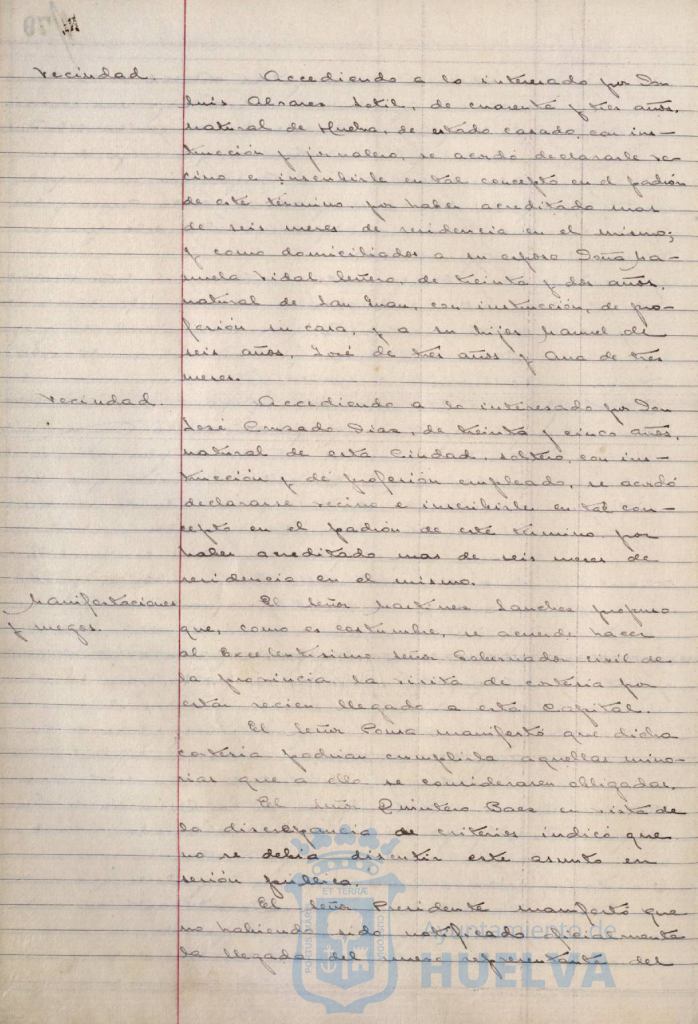 Vecindad.
Accediendo a lo interesado por Don
Luis Alvares Sotil, de cuarenta y tres años,
natural de Huelva, de estado casado, con ins-
trucción y jornalero, se acordó declararle ve-
cino e inscribirle en tal concepto en el padrón
de este término, por haber acreditado mas
de seis meses de residencia en el mismo;
y como domiciliados a su esposa Doña Ma-
nuela Vidal, de treinta y dos años,
natural de San Juan, con instrucción, de pro-
fesión su casa, y a su hijos Manuel de
seis años, José de tres años y Ana de tres
meses.
Vecindad.
Accediendo a lo interesado por Don
José Cruzado Diaz, de treinta y cinco años,
natural de esta Ciudad, soltero, con ins-
trucción y de profesión empleado, se acordó
declararse vecino e inscribirle en tal con-
cepto en el padrón de este término por
haber acreditado mas de seis meses de
residencia en el mismo.
Manifestaciones
y ruegos.
El Señor Martinez Sanchez propuso
que, como es costumbre, se acuerde hacer
al Excelentísimo Señor Gobernador civil de
la provincia la visita de cortesia por
estar recien llegado a esta Capital.
El Señor Ponsa manifestó que dicha
cortesia podrian cumplirla aquellas mino-
rias que a ello se consideraren obligadas.
El Señor Quintero Baez en vista de
la discrepancia de criterios indicó que
no se debia discutir este asunto en
sesión pública.
El Señor Presidente manifestó que
no habiendo sido notificado oficialmente
la llegada del nuevo representante del
PORTUS MARIS
ET TERRAE
CUSTODIA
Ayuntamiento de
HUELVA